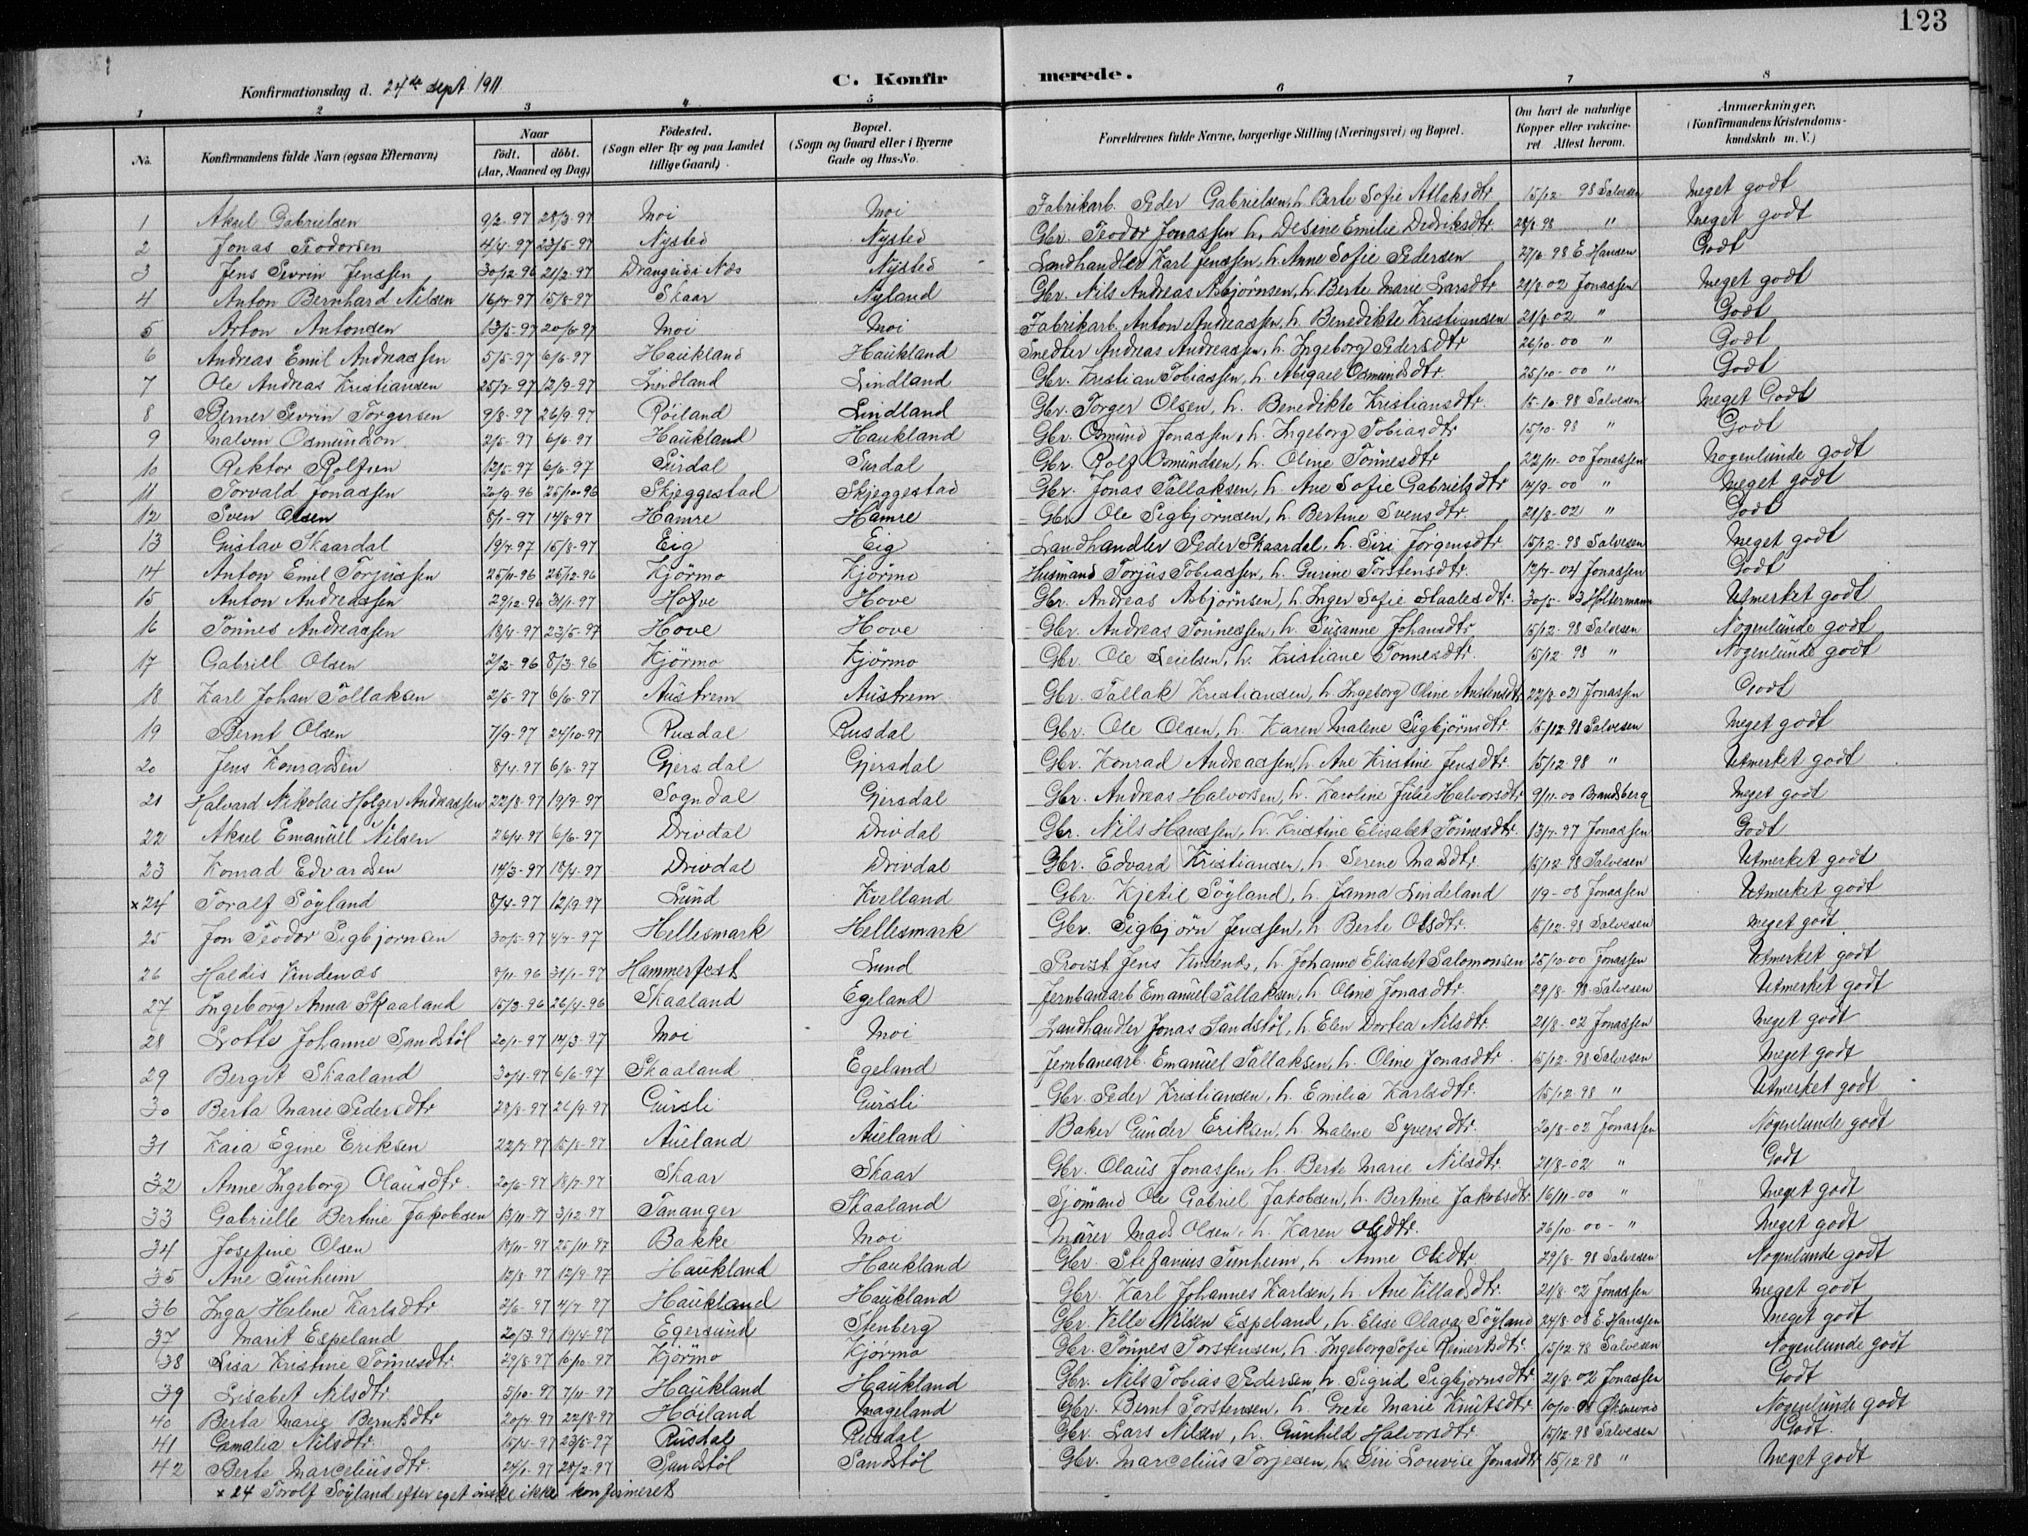 123
Konfirmationsdag d. 24de sept. 1911
C. Konfirmerede.
1 2 3 4 5 6 7 8
No. Konfirmandens fulde Navn (ogsaa Efternavn) Naar født. døbt. (Aar, Maaned og Dag) Fødested. (Sogn eller By og paa Landet tillige Gaard) Bopæl. (Sogn og Gaard eller i Byerne Gade og Hus-No. Forældrenes fulde Navne, borgerlige Stilling (Næringsvei) og Bopæl. Om havt de naturlige Kopper eller vakcineret Attest herom. Anmærkninger. (Konfirmandens Kristendomskundskab m. V.)
1 Aksel Gabrielsen 9/2-97 28/3-97 Moi Moi Fabrikarb. Peder Gabrielsen, h. Berte Sofie Atlaksdtr 15/12 98 Salvesen Meget godt
2 Jonas Teodorsen 4/4-97 23/5-97 Nysted Nysted Gbr. Teodor Jonassen h. Desine Emilie Didriksdtr 28/8 98 " Meget godt
3 Jens Sevrin Jenssen 30/12 96 21/2-97 Drangsdsi Næs Nysted Landhandler Karl Jenssen, h. Anne Sofie Pedersen 27/6-98 E. Hansen Godt
4 Anton Bernhard Nilsen 16/7-97 15/8-97 Skaar Nyland Gbr. Nils Andreas Asbjørnsen, h. Berte Marie Larsdtr 21/8 02 Jonassen Meget godt
5 Arton Antonsen 13/5-97 20/6-97 Moi Moi Fabrikarb. Anton Andreassen, h. Benedikte Kristiansen 21/8-02 " Godt
6 Andreas Emil Andreassen 5/5-97 6/6-97 Haukland Haukland Snedker Andreas Andreassen, h. Ingeborg Pedersdtr 26/10-00 " Godt
7 Ole Andreas Kristiansen 25/7-97 12/9-97 Lindland Lindland Gbr. Kristian Tobiassen, h. Abigael Osmundsdtr. 25/10-00 " Godt
8 Berner Sevrin Torgersen 9/8-97 26/9-97 Røiland Lindland Gbr. Torger Olsen, h. Benedikte Kristiansdtr. 15-10-98 Salvesen Meget Godt
9 Malvin Osmundson 2/5-97 6/6-97 Haukland Haukland Gbr. Osmund Jonassen, h. Ingeborg Tobiasdtr 15/10-98 " Godt
10 Rektor Rolfsen 12/5-97 6/6-97 Surdal Surdal Gbr. Rolf Osmundsen, h. Oline Tönnesdtr 22/11-00 Jonassen Nogenlunde godt
11 Torvald Jonassen 20/9-96 25/10-96 Skjeggestad Skjeggestad Gbr. Jonas Tallaksen, h. Ane Sofie Gabrielsdtr 14/9-00 " Meget godt
12 Sven Olsen 8/7-97 14/8-97 Hamre Hamre Gbr. Ole Sigbjörnsen, h. Bertine Svensdtr. 21/8-02 " Godt
13 Gustav Skaardal 19/7-97 15/8-97 Eig Eig Landhandler Peder Skaardal, h. Siri Jörgensdtr 15/12-98 Salvesen Meget godt
14 Anton Emil Torjussen 25/11-96 26/12-96 Kjörmo Kjörmo Husmand Torjus Tobiassen, h. Gurine Torstensdtr. 12/7-04 Jonassen Godt
15 Anton Andreassen 29/12-96 31/1-97 Hove Hove Gbr. Andreas Asbjørnsen, h. Inger Sofie Staalesdtr. 30/5-3 Holtermann Utmerket godt
16 Tönnes Andreassen 18/4-97 23/5-97 Hove Hove Gbr. Andreas Tönnessen, h. Susanne Johansdtr 15/12-98 Salvesen Nogenlunde godt
17 Gabriel Olsen 2/2-96 8/3-96 Kjörmo Kjörmo Gbr. Ole Leielsen, h. Kristiane Tönnesdtr. 15/12 98 " Nogenlunde godt
18 Karl Johan Tallaksen 2/5-97 6/6-97 Austrem Austrem Gbr. Tallak Kristiansen, h. Ingeborg Oline Austensdtr 22/8-02 Jonassen Godt
19 Bernt Olsen 7/9-97 24/10-97 Rusdal Rusdal Gbr. Ole Olsen, h. Karen Malene Sigbjörnsdtr 15/12-98 Salvesen Meget godt
20 Jens Konradsen 8/4-97 6/6-97 Gjersdal Gjersdal Gbr. Konrad Andreassen, h. Ane Kristine Jensdtr 15/12-98 " Utmerket godt
21 Halvard Nikolai Holger Andreassen 22/8-97 19/9-97 Sogndal Gjersdal Gbr. Andreas Halvorsen, h. Karoline Julie Halvorsdtr 9/11-00 Brandsberg Meget godt
22 Aksel Emanuel Nilsen 26/4-97 6/6-97 Drivdal Drivdal Gbr. Nils Hanssen, h. Kristine Elisabet Tönnesdtr. 13/7-97 Jonassen Godt
23 Konrad Edvardsen 14/3-97 18/4-97 Drivdal Drivdal Gbr. Edvard Kristiansen, h. Serene Madsdtr. 15/12-98 Salvesen Utmerket godt
x 24 Toralf Söyland 8/4-97 12/9-97 Lund Kvelland Gbr. Kjetil Söyland, h. Janna Lindeland 1/9-08 Jonassen Utmerket godt
25 Jon Teodor Sigbjornsen 30/5-97 4/7-97 Hellesmark Hellesmark Gbr. Sigbjörn Jenssen, h Berte Olsdtr. 15/12-98 Salvesen Meget godt
26 Haldis Vindenæs 9/11-96 31/1-97 Hammerfest Lund Provst Jens Vindenæs, h. Johanne Elisabet Salomonsen 25/10-00 Jonassen Utmerket godt
27 Ingeborg Anna Skaaland 15/3-96 26/4-96 Skaaland Egeland Jernbanearb Emanuel Tallaksen, h. Oline Jonasdtr. 29/8-98 Salvesen Utmerket godt
28 Lotte Johanne Sandstöl 20/1-97 14/3-97 Moi Moi Landhandler Jonas Sandstöl, h. Elen Dortea Nilsdtr. 21/8-02 Jonassen Meget godt
29 Bergit Skaaland 30/4-97 6/6-97 Skaaland Egeland Jernbanearb. Emanuel Tallaksen, h. Oline Jonasdtr. 15/12-98 Salvesen Meget godt
30 Berta Marie Pedersdtr 28/8-97 26/9-97 Gursli Gursli Gbr. Peder Kristiansen, h. Emilia Karlsdtr. 15/12 98 " Utmerket godt
31 Kaia Egine Eriksen 22/7-97 15/8-97 Aueland Aueland Baker Gunder Eriksen, h. Malene Syversdtr. 20/8-02 Jonassen Nogenlunde godt
32 Anne Ingeborg Olausdtr. 20/6-97 18/7-97 Skaar Skaar Gbr. Olaus Jonassen, h. Berte Marie Nilsdtr. 21/8-02 " Godt
33 Gabrielle Bertine Jakobsen 13/11-97 3/12-97 Tananger Skaaland Sjömand Ole Gabriel Jakobsen, h. Bertine Jakobsdtr 16/11-00 " Meget godt
34 Josefine Olsen 10/11-97 25/11-97 Bakke Moi Murer Mads Olsen, h. Karen Olsdtr. 26/10-00- " Meget godt
35 Ane Tunheim 12/8-97 12/9-97 Haukland Haukland Gbr. Stefanius Tunheim, h. Anne Olsdtr. 29/8-98 Salvesen Nogenlunde godt
36 Inga Helene Karlsdtr 2/6-97 4/7-97 Haukland Haukland Gbr. Karl Johannes Karlsen, h. Ane Villadsdtr. 21/8-02 Jonassen Meget godt
37 Marit Espeland 20/3-97 19/4-97 Egersund Stenberg Gbr. Velle Nilsen Espeland, h. Elise Olava Söyland 24/8-08 E. Hanssen Meget godt
38 Lisa Kristine Tönnesdtr 29/8-97 10/10-97 Kjörmo Kjörmo Gbr. Tönnes Torstensen, h. Ingeborg Sofie Reinertsdtr. 15/12-98 Salvesen Nogenlunde godt
39 Lisabet Nilsdtr. 5/10-97 7/11-97 Haukland Haukland Gbr. Nils Tobias Pedersen h. Sigrid Sigbjørnsdtr 21/8-02 Jonassen Godt
40 Berta Marie Berntsdtr 20/7-97 22/8-97 Höiland Mageland Gbr. Bernt Torstensen, h. Grete Marie Knutsdtr 10/10-08 Øksnevad Nogenlunde godt
41 Gamalia Nilsdtr 15/4-97 23/5-97 Rusdal Rusdal Gbr. Lars Nilsen, h. Gunhild Halvorsdtr. 15/12-98 Salvesen Godt.
42 Berte Marceliusdtr 24/1-97 28/2-97 Sandstöl Sandstöl Gbr. Marcelius Torjesen, h. Siri Lovise Jonasdtr 15/12 98 " Meget godt
x 24 Torolf Söyland efter eget önske ikke konfirmeret